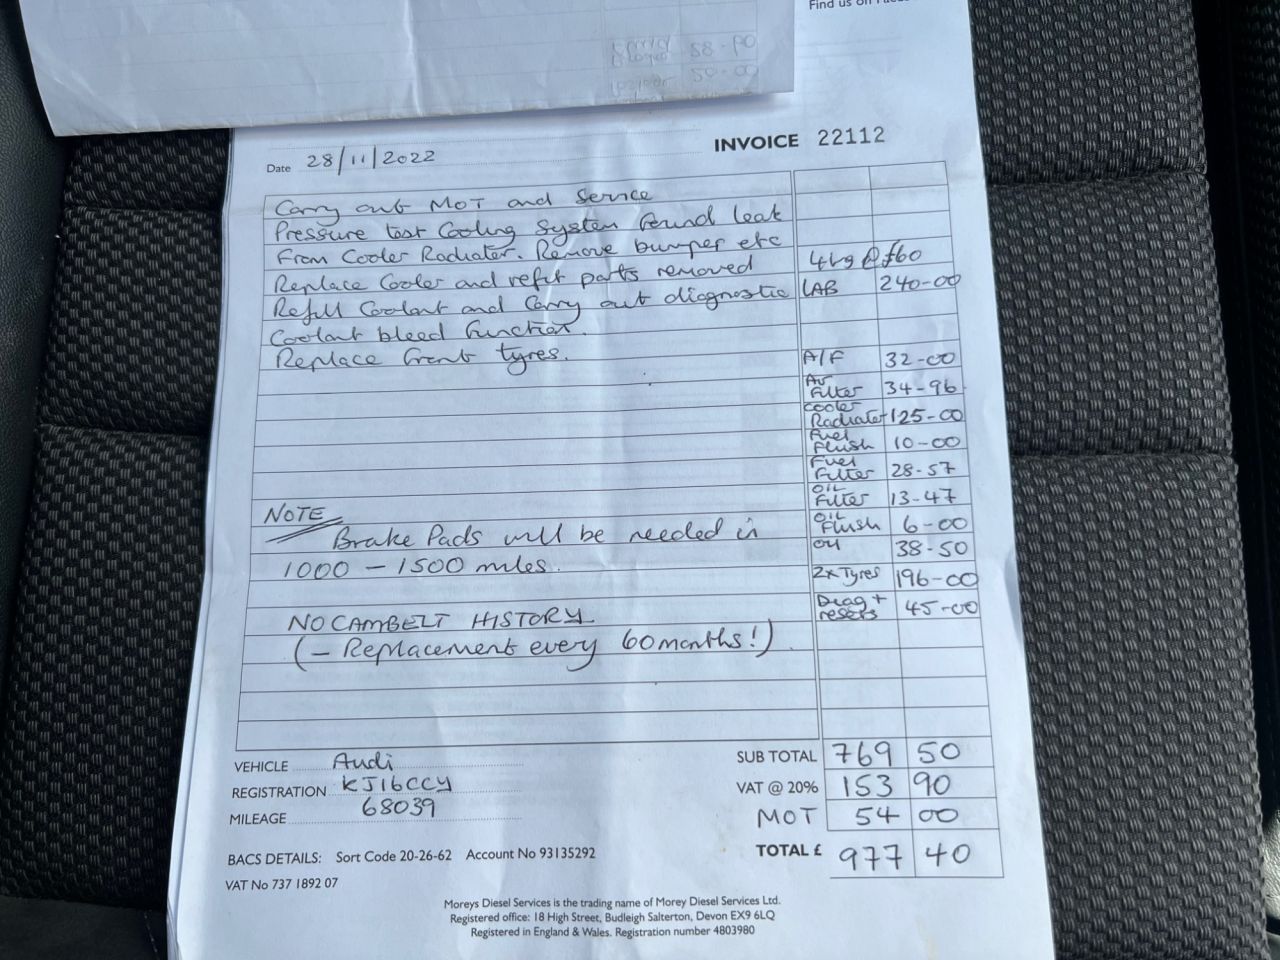 Find us on
28-90
20-00
INVOICE 22112
Date 28/11/2022
Carry out MOT and Service
Pressure test Cooling System found leak
From Cooler Radiator. Remove bumper etc
4hrs @ £60
Replace Cooler and refit parts removed
LAB 240-00
Refill Coolant and Carry out diagnostic
Coolant bleed function.
Replace front tyres.
A/F 32-00
Air
Filter 34-96
Cooler
Radiator 125-00
Fuel
Flush 10-00
Fuel
Filter 28-57
OIL
Filter 13-47
OIL
Flush 6-00
Oil 38-50
2x Tyres 196-00
Diag +
resets 45-00
NOTE
Brake Pads will be needed in
1000 - 1500 miles.
NO CAMBELT HISTORY
(- Replacement every 60 months!).
SUB TOTAL 769 50
VAT @ 20% 153 90
MOT 54 00
TOTAL £ 977 40
VEHICLE Audi
REGISTRATION KJ16CCY
MILEAGE 68039
BACS DETAILS: Sort Code 20-26-62 Account No 93135292
VAT No 737 1892 07
Moreys Diesel Services is the trading name of Morey Diesel Services Ltd.
Registered office: 18 High Street, Budleigh Salterton, Devon EX9 6LQ
Registered in England & Wales. Registration number 4803980